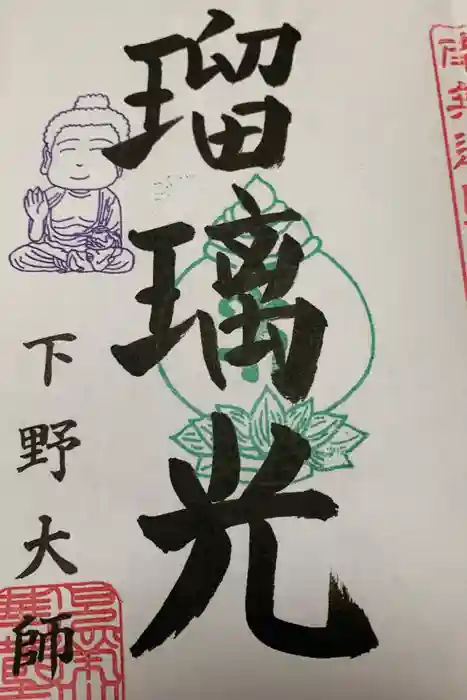 瑠璃光
下野大師